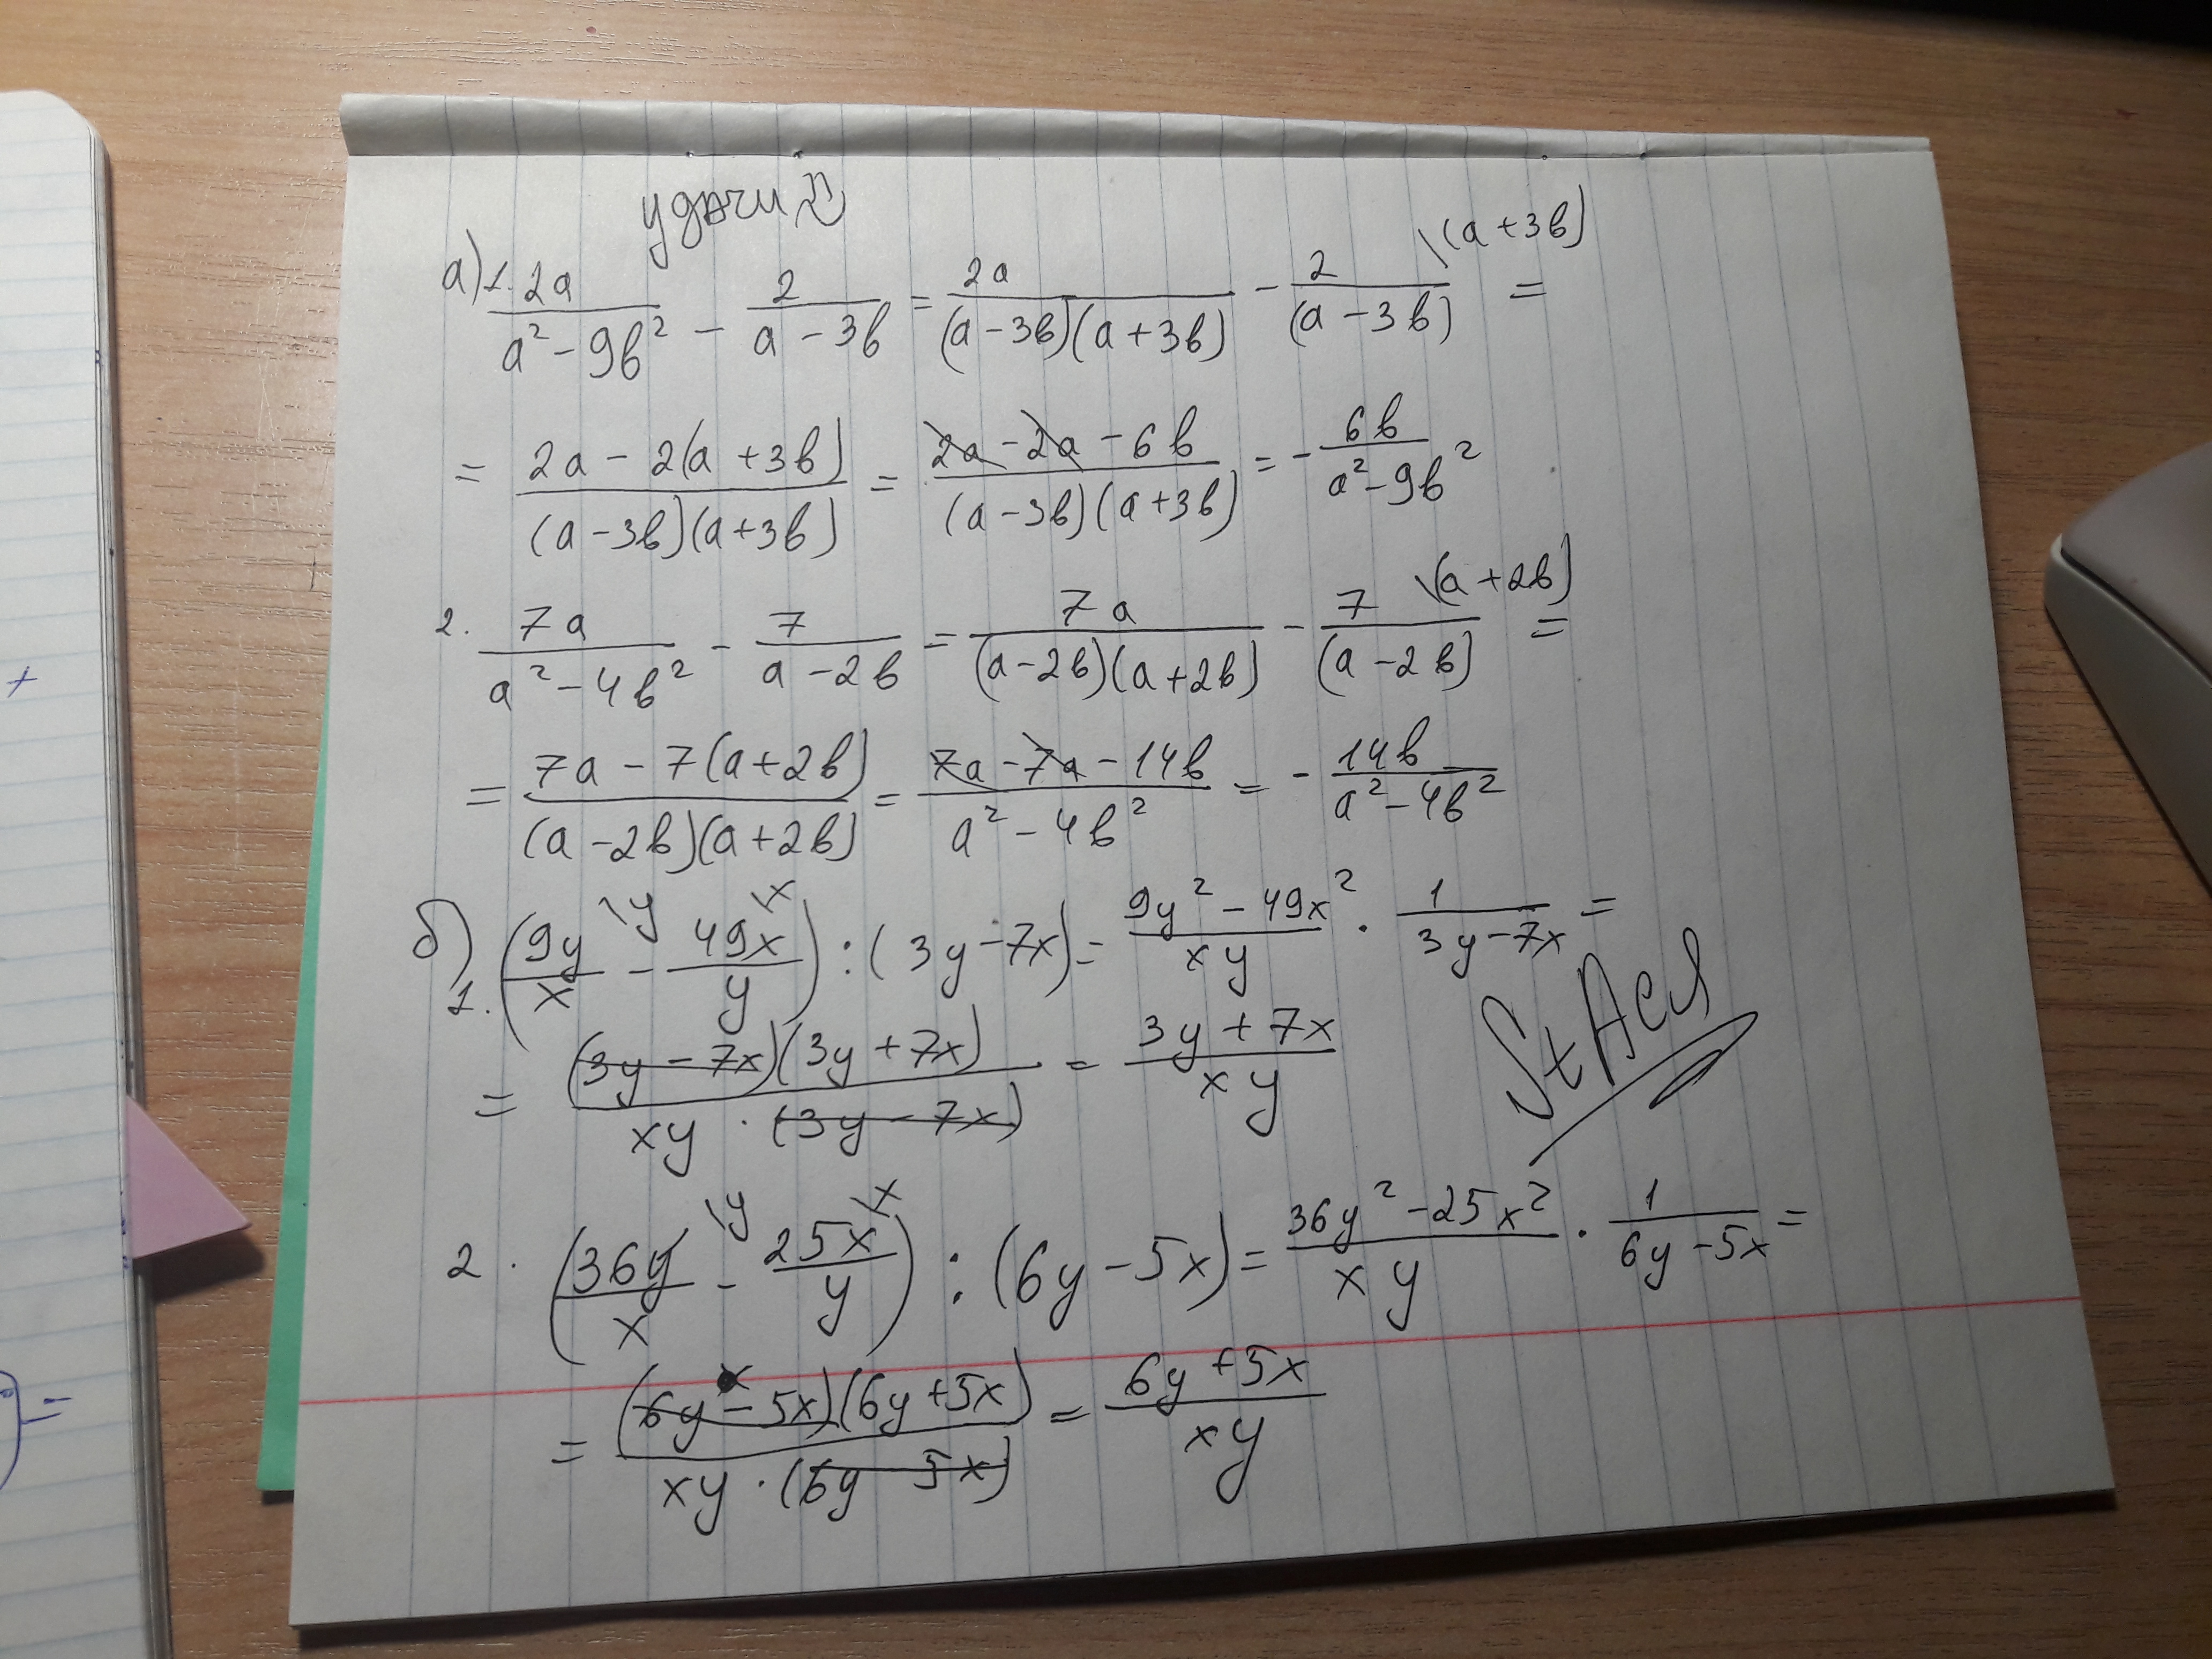 удачи
а) 1. 2a/(a² - 9b²) - 2/(a - 3b) = 2a/((a - 3b)(a + 3b)) - 2/(a - 3b) \(a + 3b) =
= (2a - 2(a + 3b))/((a - 3b)(a + 3b)) = (2a - 2a - 6b)/((a - 3b)(a + 3b)) = - 6b/(a² - 9b²)
2. 7a/(a² - 4b²) - 7/(a - 2b) = 7a/((a - 2b)(a + 2b)) - 7/(a - 2b) \(a + 2b) =
= (7a - 7(a + 2b))/((a - 2b)(a + 2b)) = (7a - 7a - 14b)/(a² - 4b²) = - 14b/(a² - 4b²)
б) 1. (9y/x \y - 49x/y \x) : (3y - 7x) = (9y² - 49x²)/(xy) · 1/(3y - 7x) =
= ((3y - 7x)(3y + 7x))/(xy · (3y - 7x)) = (3y + 7x)/(xy)
StАся
2. (36y/x \y - 25x/y \x) : (6y - 5x) = (36y² - 25x²)/(xy) · 1/(6y - 5x) =
= ((6y - 5x)(6y + 5x))/(xy · (6y - 5x)) = (6y + 5x)/(xy)
+
) =